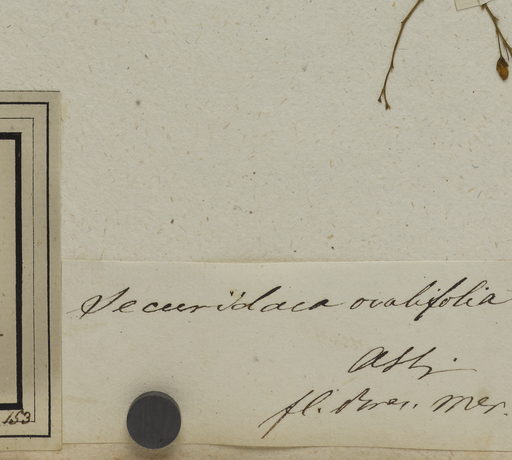 Securidaca ovalifolia
ASH.
fl. Bras. mer.
153